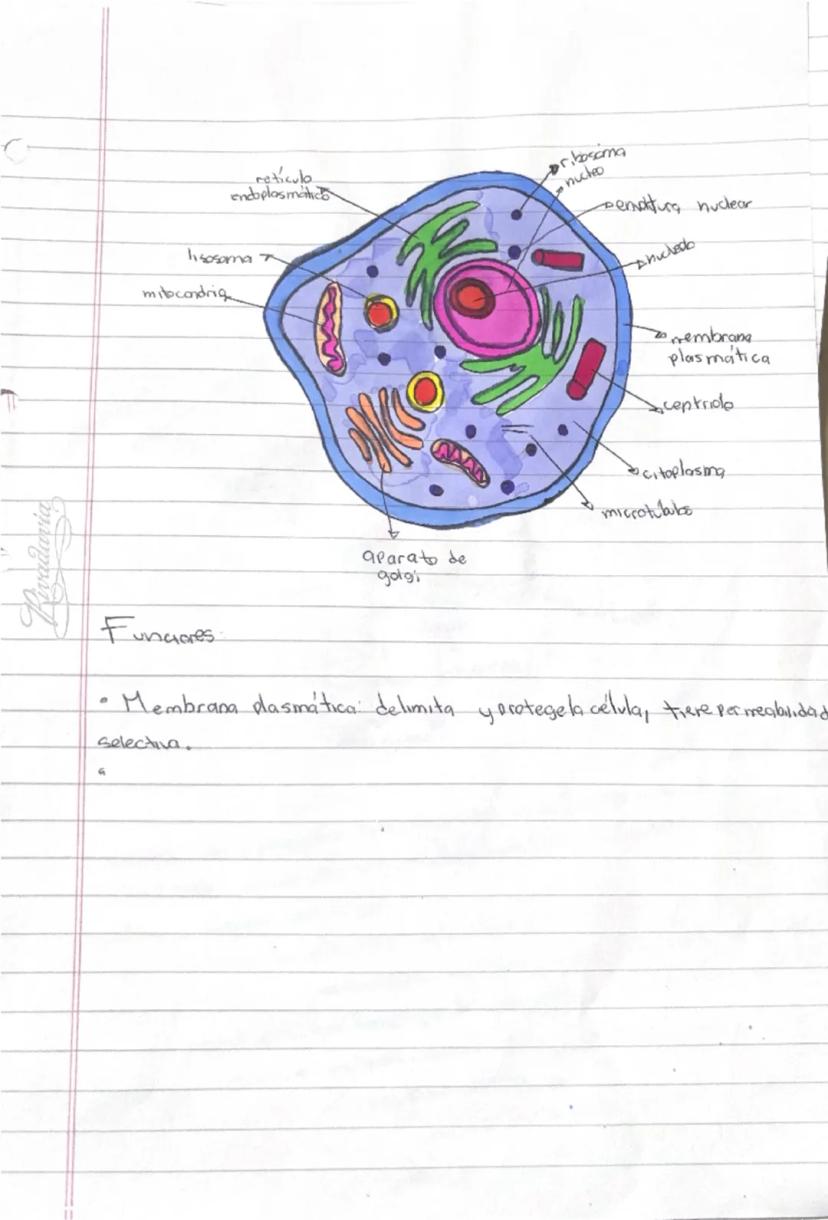 ribosoma
retículo
endoplasmático
nucleo
envoltura nuclear
lisosoma
nucleolo
mitocondria
membrana
plasmática
centriolo
citoplasma
microtúbulos
aparato de
golgi
Rivadavia
Funciones:
• Membrana plasmática: delimita y protege la célula, tiene permeabilidad
selectiva.